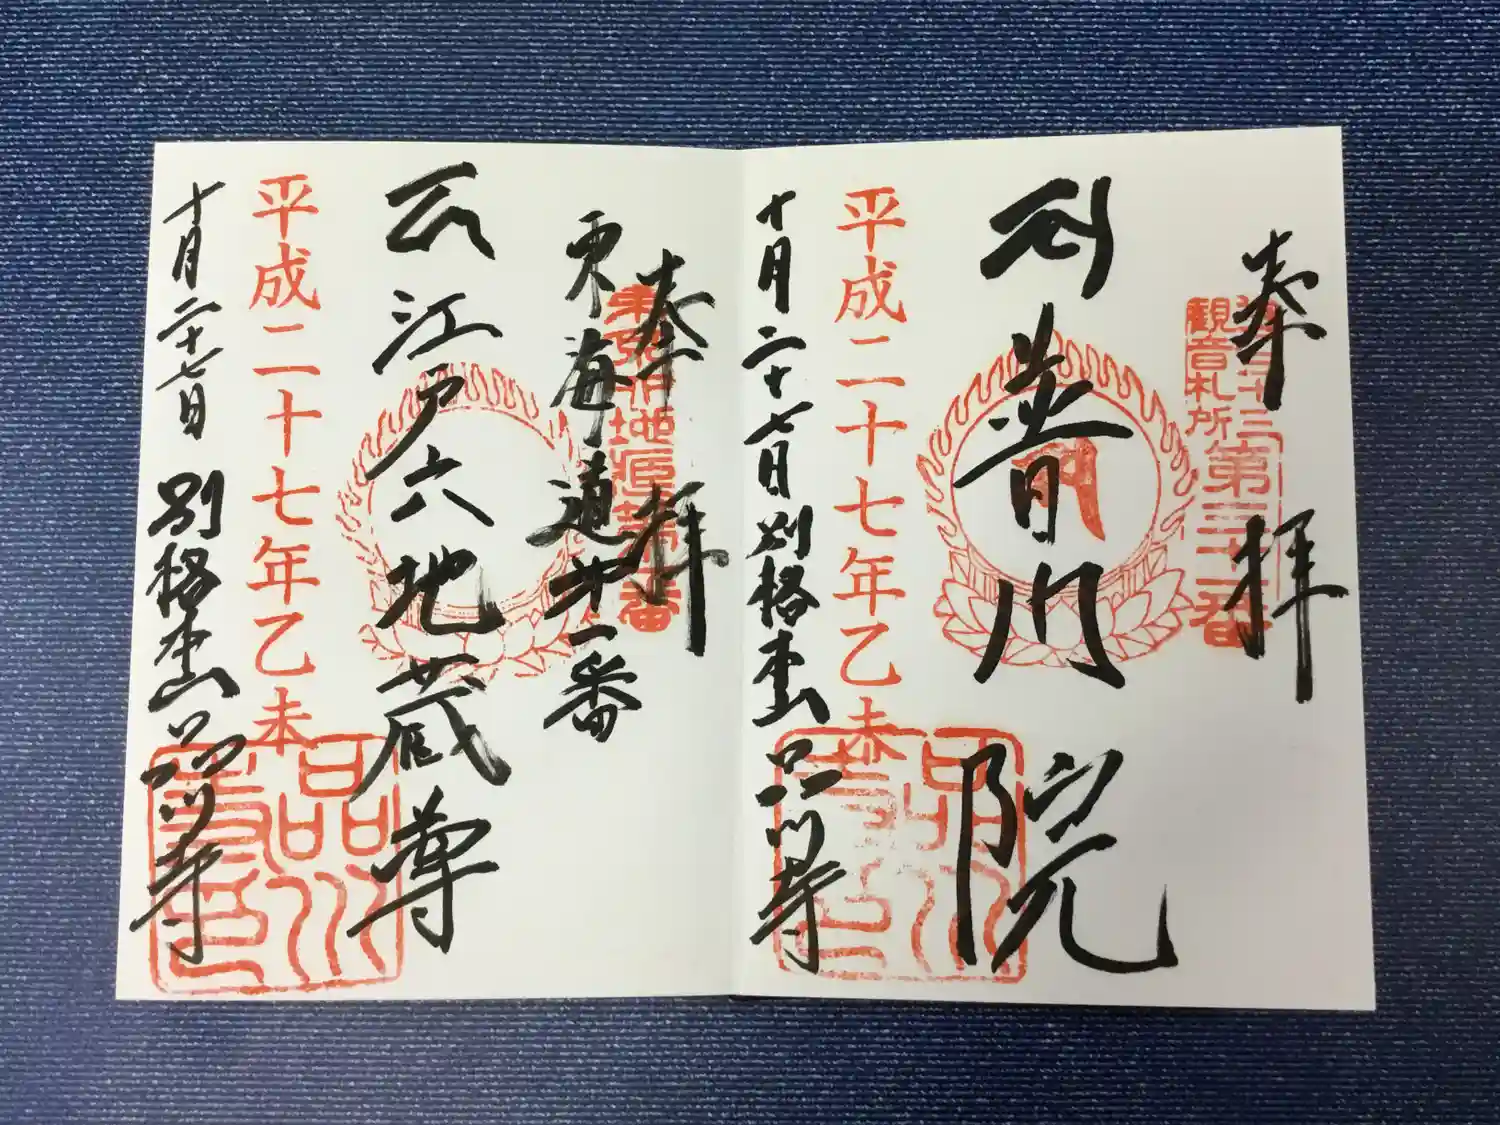 奉拝
観音札所
第三十一番
普門院
平成二十七年乙未
十月二十七日
別格本山
品川寺
奉拝
東海道第一番
江戸六地蔵尊
平成二十七年乙未
十月二十七日
別格本山
品川寺